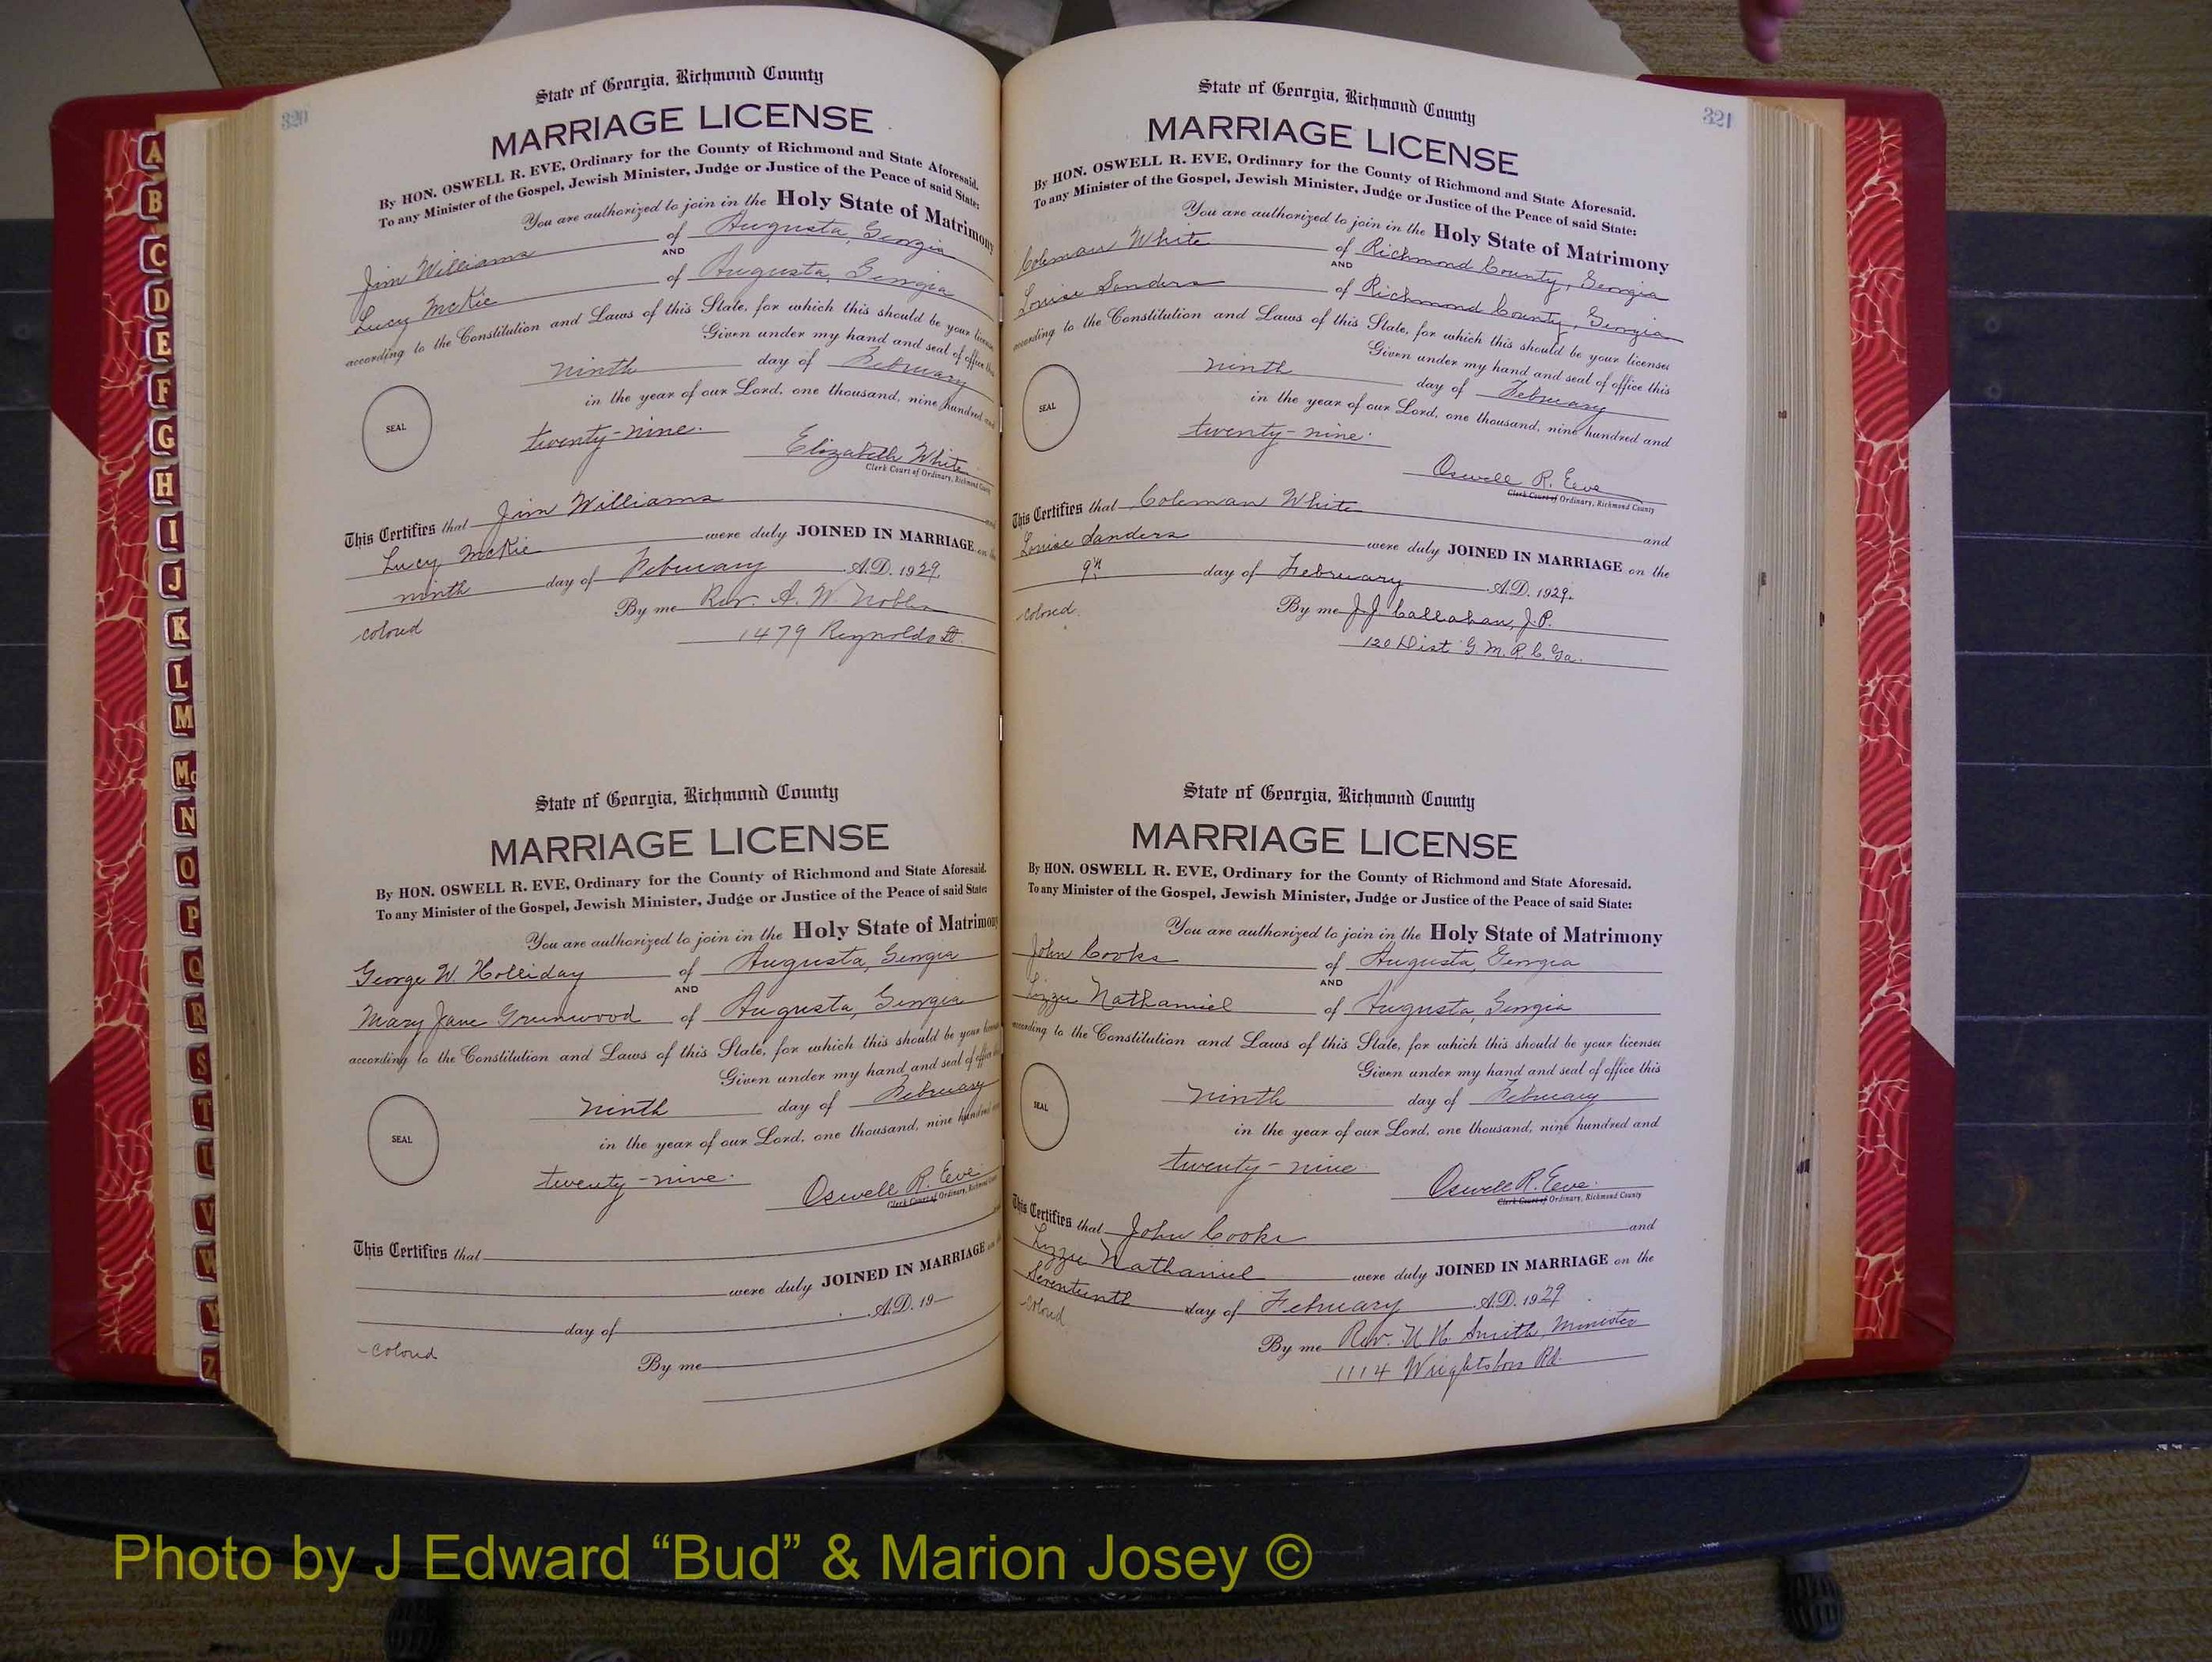 320
State of Georgia, Richmond County
MARRIAGE LICENSE
By HON. OSWELL R. EVE, Ordinary for the County of Richmond and State Aforesaid.
To any Minister of the Gospel, Jewish Minister, Judge or Justice of the Peace of said State:
You are authorized to join in the Holy State of Matrimony
Jim Williams of Augusta, Georgia
AND
Lucy McKie of Augusta, Georgia
according to the Constitution and Laws of this State, for which this should be your license
Given under my hand and seal of office this
ninth day of February
in the year of our Lord, one thousand, nine hundred and
SEAL
twenty-nine.
Elizabeth White
Clerk Court of Ordinary, Richmond County
This Certifies that Jim Williams and
Lucy McKie were duly JOINED IN MARRIAGE on the
ninth day of February A.D. 1929.
colored
By me Rev. A. W. Nobles
1479 Reynolds St.
State of Georgia, Richmond County
MARRIAGE LICENSE
By HON. OSWELL R. EVE, Ordinary for the County of Richmond and State Aforesaid.
To any Minister of the Gospel, Jewish Minister, Judge or Justice of the Peace of said State:
You are authorized to join in the Holy State of Matrimony
George W. Holliday of Augusta, Georgia
AND
Mary Jane Greenwood of Augusta, Georgia
according to the Constitution and Laws of this State, for which this should be your license
Given under my hand and seal of office this
ninth day of February
in the year of our Lord, one thousand, nine hundred and
SEAL
twenty-nine.
Oswell R. Eve
Clerk Court of Ordinary, Richmond County
This Certifies that
were duly JOINED IN MARRIAGE on the
day of A.D. 19
colored
By me
321
State of Georgia, Richmond County
MARRIAGE LICENSE
By HON. OSWELL R. EVE, Ordinary for the County of Richmond and State Aforesaid.
To any Minister of the Gospel, Jewish Minister, Judge or Justice of the Peace of said State:
You are authorized to join in the Holy State of Matrimony
Coleman White of Richmond County, Georgia
AND
Louise Sanders of Richmond County, Georgia
according to the Constitution and Laws of this State, for which this should be your licenses
Given under my hand and seal of office this
ninth day of February
in the year of our Lord, one thousand, nine hundred and
SEAL
twenty-nine.
Oswell R. Eve
Clerk Court of Ordinary, Richmond County
This Certifies that Coleman White and
Louise Sanders were duly JOINED IN MARRIAGE on the
9th day of February A.D. 1929.
colored.
By me J. J. Callahan, J.P.
120 Dist G. M. R. C. Ga.
State of Georgia, Richmond County
MARRIAGE LICENSE
By HON. OSWELL R. EVE, Ordinary for the County of Richmond and State Aforesaid.
To any Minister of the Gospel, Jewish Minister, Judge or Justice of the Peace of said State:
You are authorized to join in the Holy State of Matrimony
John Cooks of Augusta, Georgia
AND
Lizzie Nathaniel of Augusta, Georgia
according to the Constitution and Laws of this State, for which this should be your licenses
Given under my hand and seal of office this
ninth day of February
in the year of our Lord, one thousand, nine hundred and
SEAL
twenty-nine
Oswell R. Eve.
Clerk Court of Ordinary, Richmond County
This Certifies that John Cooks and
Lizzie Nathaniel were duly JOINED IN MARRIAGE on the
Seventeenth day of February A.D. 1929
colored
By me Rev. Smith, Minister
1114 Wrightsboro Rd.
A
B
C
D
E
F
G
H
I
J
K
L
M
Mc
N
O
P
Q
R
S
T
U
V
W
Y
Z
Photo by J Edward “Bud” & Marion Josey ©